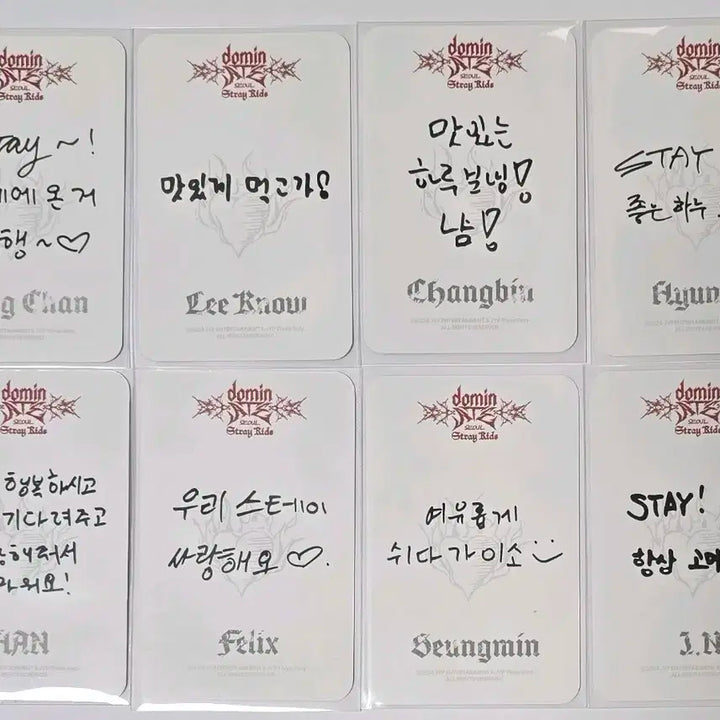 domin
ATE
SEOUL
Stray Kids
ay ~!
에 온 거
행~♡
g Chan
domin
ATE
SEOUL
Stray Kids
맛있게 먹고가!
Lee Know
domin
ATE
SEOUL
Stray Kids
맛있는
하루 보냉!
냠!
Changbin
domin
ATE
SEOUL
Stray Kids
STAY
좋은 하루
Hyun
domin
ATE
SEOUL
Stray Kids
행복하시고
기다려주고
해줘서
마워요!
HAN
domin
ATE
SEOUL
Stray Kids
우리 스테이
사랑해요 ♡.
Felix
domin
ATE
SEOUL
Stray Kids
여유롭게
쉬다 가이소
Seungmin
domin
ATE
SEOUL
Stray Kids
STAY!
항상 고마
I.N